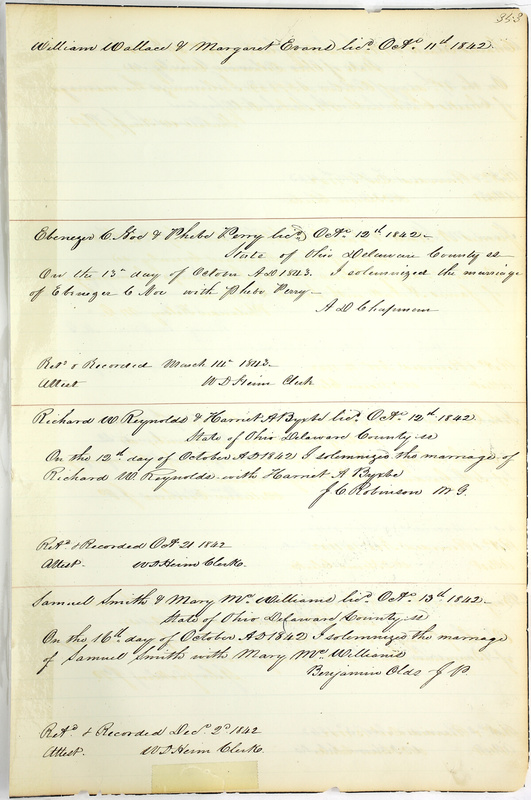 353
William Wallace & Margaret Evans lic.d Oct.r 11th 1842.
Ebenezer C. Noe & Phebe Perry lic.d Oct.r 12th 1842 –
State of Ohio Delaware County ss
On the 13th day of Octover AD 1843. I solemnized the marriage
of Ebenezer C Noe with Phebe Perry –
A D Chapman
Ret.d & Recorded March 11th 1843 –
Attest W D Heim Clerk
Richard W Reynolds & Harriet A Byxbe lic.d Oct.r 12th 1842
State of Ohio Delaware County ss
On the 12th day of October AD 1842 I solemnized the marriage of
Richard W. Reynolds with Harriet A Byxbe
J. C. Robinson M G.
Ret.d & Recorded Oct 21 1842
Attest. W D Heim Clerk.
Samuel Smith & Mary Mc Williams lic.d Oct.r 13th 1842 –
State of Ohio Delaware County ss
On the 16th day of October AD 1842 I solemnized the marriage
of Samuel Smith with Mary Mc Williams
Benjamin Olds J P.
Ret.d & Recorded Dec.r 2d 1842
Attest. W D Heim Clerk